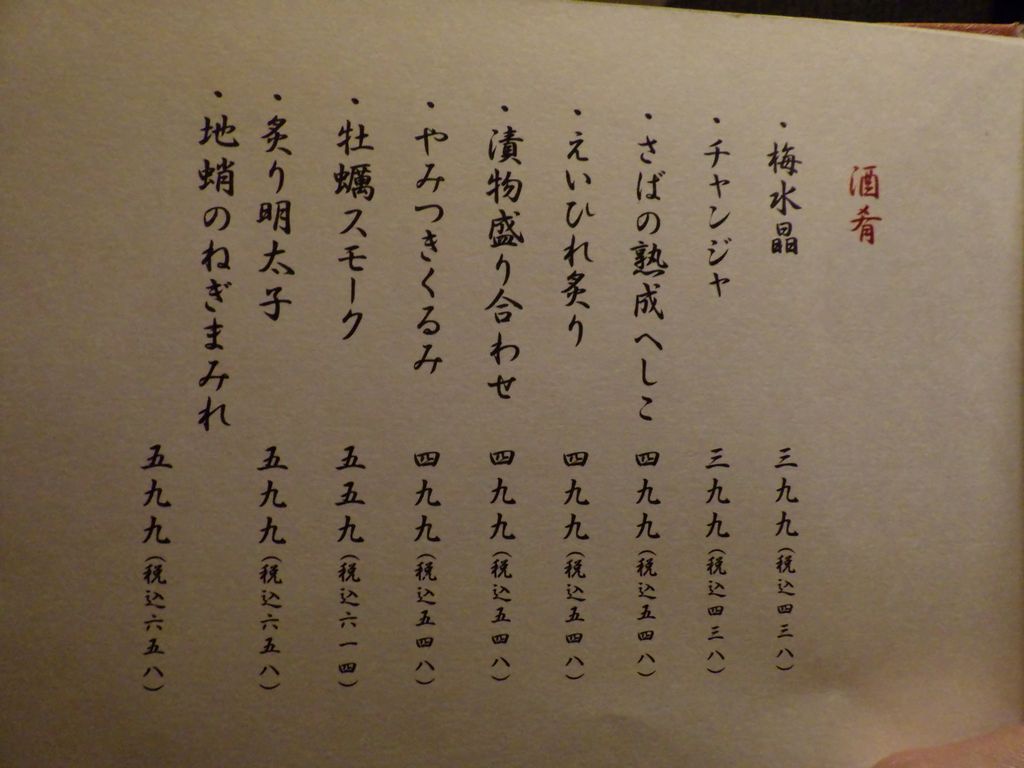 酒肴
・梅水晶 三九九(税込四三八)
・チャンジャ 三九九(税込四三八)
・さばの熟成へしこ 四九九(税込五四八)
・えいひれ炙り 四九九(税込五四八)
・漬物盛り合わせ 四九九(税込五四八)
・やみつきくるみ 四九九(税込五四八)
・牡蠣スモーク 五五九(税込六一四)
・炙り明太子 五九九(税込六五八)
・地蛸のねぎまみれ 五九九(税込六五八)